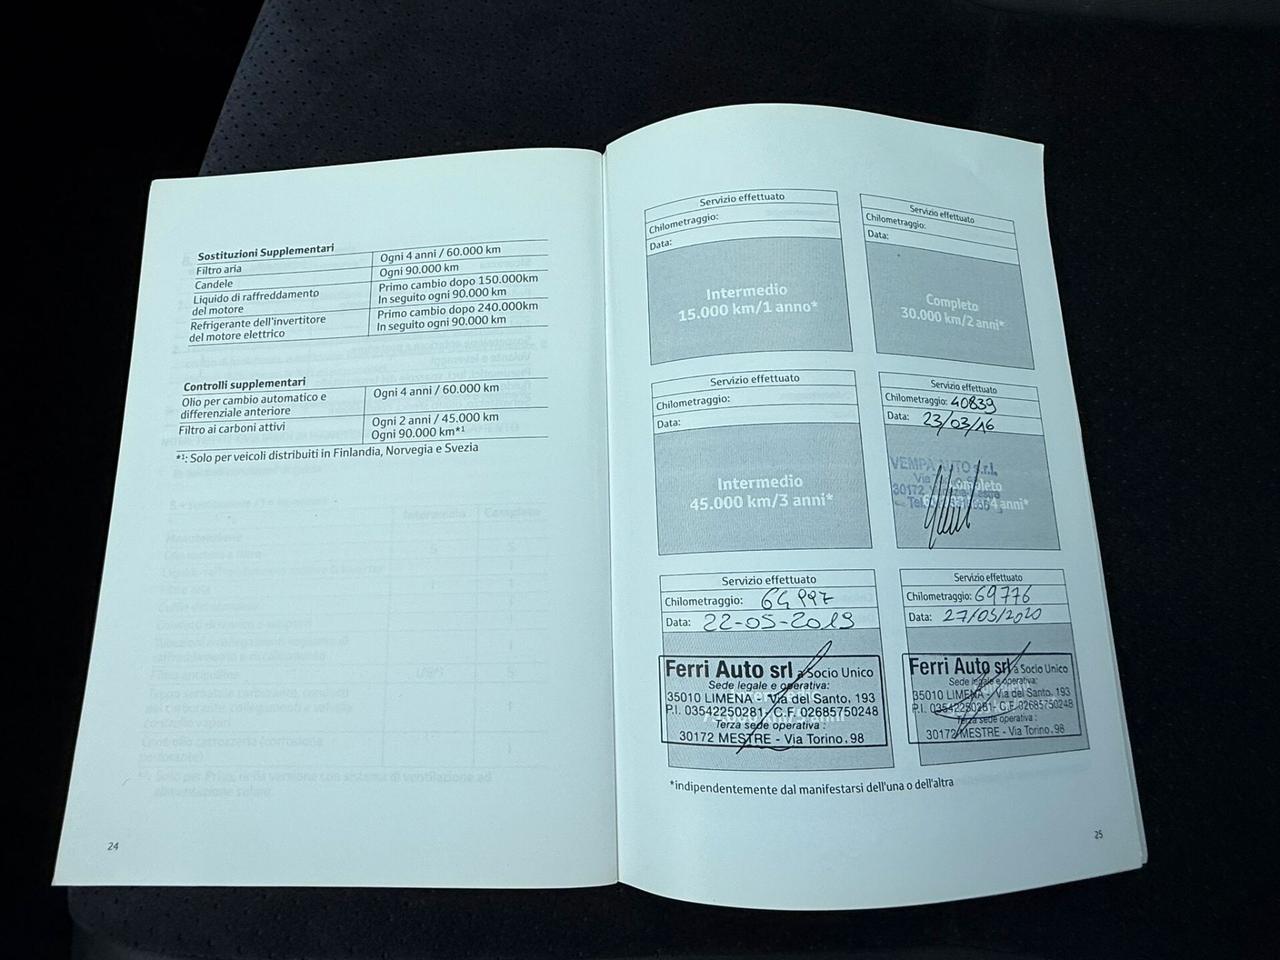 Sostituzioni Supplementari
Filtro aria Ogni 4 anni / 60.000 km
Candele Ogni 90.000 km
Liquido di raffreddamento del motore Primo cambio dopo 150.000km
In seguito ogni 90.000 km
Refrigerante dell'invertitore del motore elettrico Primo cambio dopo 240.000km
In seguito ogni 90.000 km
Controlli supplementari
Olio per cambio automatico e differenziale anteriore Ogni 4 anni / 60.000 km
Filtro ai carboni attivi Ogni 2 anni / 45.000 km
Ogni 90.000 km*1
*1: Solo per veicoli distribuiti in Finlandia, Norvegia e Svezia
24
Servizio effettuato
Chilometraggio:
Data:
Intermedio
15.000 km/1 anno*
Servizio effettuato
Chilometraggio:
Data:
Completo
30.000 km/2 anni*
Servizio effettuato
Chilometraggio:
Data:
Intermedio
45.000 km/3 anni*
Servizio effettuato
Chilometraggio: 40839
Data: 23/03/16
VEMPA AUTO s.r.l.
Via
30172
Tel.
Completo
4 anni*
Servizio effettuato
Chilometraggio: 64997
Data: 22-05-2019
Ferri Auto srl a Socio Unico
Sede legale e operativa:
35010 LIMENA - Via del Santo, 193
P.I. 03542250281 - C.F. 02685750248
Terza sede operativa:
30172 MESTRE - Via Torino, 98
Servizio effettuato
Chilometraggio: 69776
Data: 27/05/2020
Ferri Auto srl a Socio Unico
Sede legale e operativa:
35010 LIMENA - Via del Santo, 193
P.I. 03542250281 - C.F. 02685750248
Terza sede operativa:
30172 MESTRE - Via Torino, 98
*indipendentemente dal manifestarsi dell'una o dell'altra
25